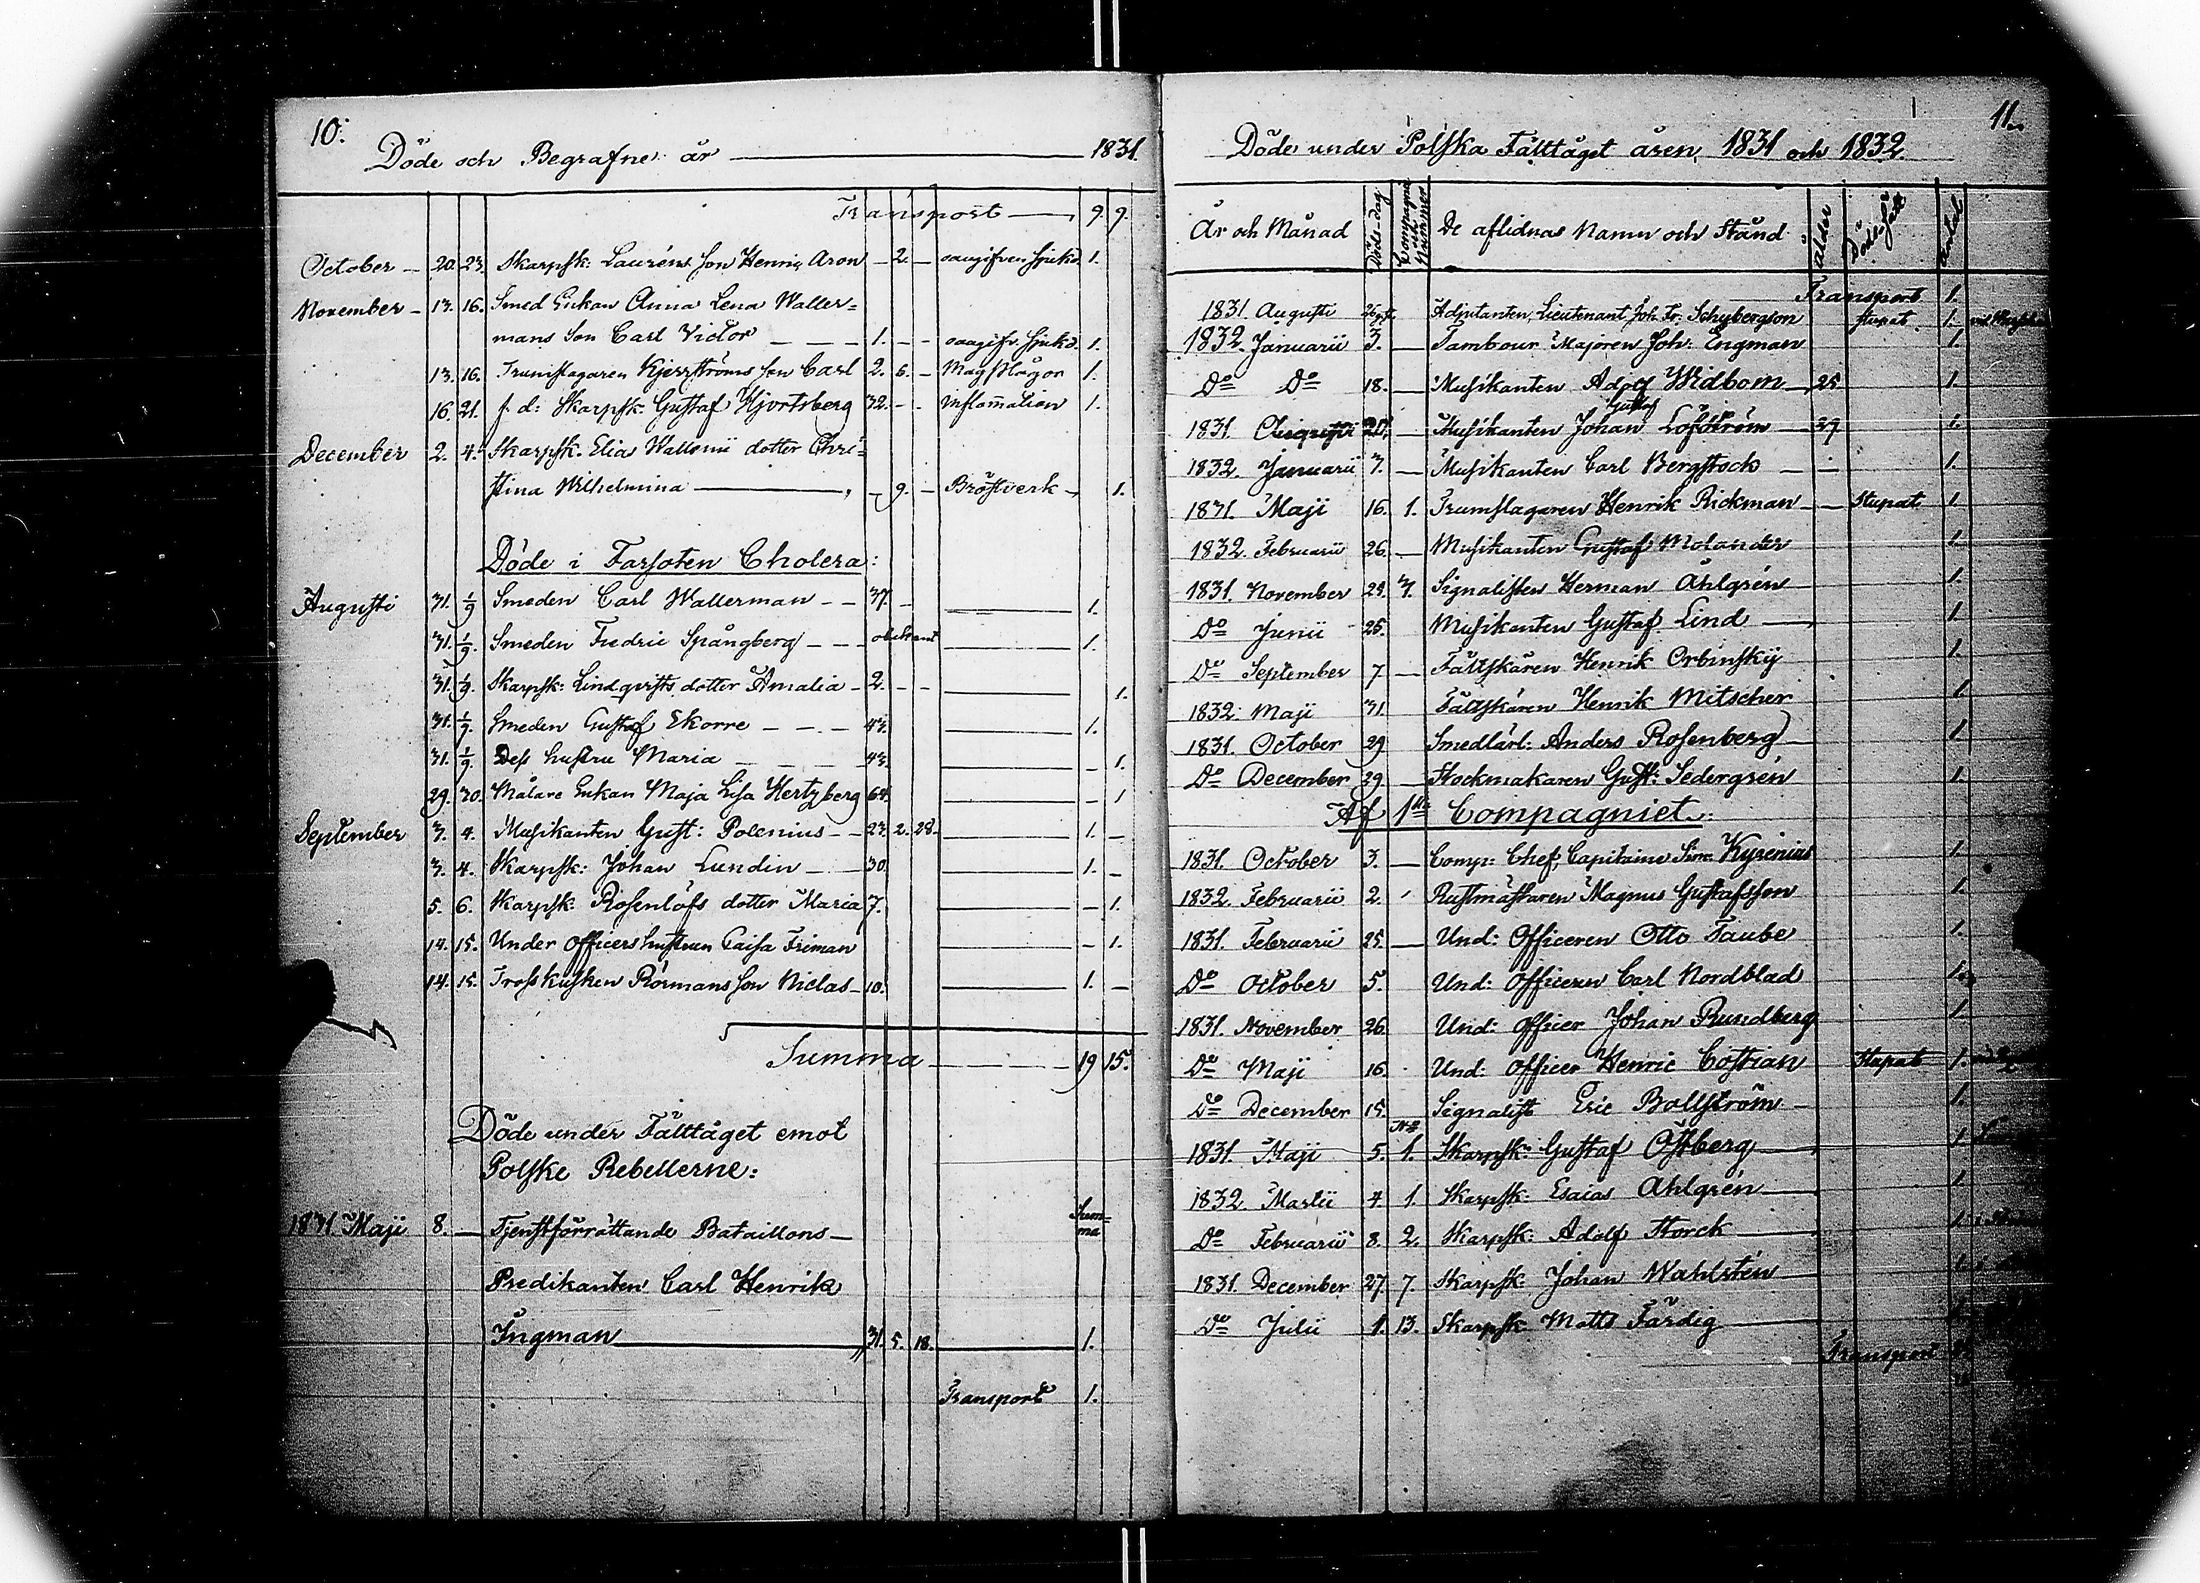 10.
Döde och Begrafne år — 1831.
Transport — 9. 9.
October — 20. 23. Skarpsk: Lauréns Son Henric Aron — 2. — oangifven Sjukd. 1.
November — 13. 16. Smed Enkan Anna Lena Waller=
mans Son Carl Victor — — — 1. — — oangifv. Sjukd. 1.
13. 16. Trumslagaren Kjerrströms Son Carl 2. 6. — Magplågor 1.
16. 21. f. d: Skarpsk. Gustaf Hjortsberg 32. — — inflamation 1.
December 2. 4. Skarpsk. Elias Wallenii dotter Chri=
stina Wilhelmina — — 9. — Bröstverk — 1.
Döde i Farsoten Cholera:
Augusti 31. 1/9 Smeden Carl Wallerman — — 37. — 1.
31. 1/9. Smeden Fredric Spångberg — — — obekant 1.
31. 1/9. Skarpsk: Lindqvists dotter Amalia — 2. — — 1.
31. 1/9. Smeden Gustaf Ekorre — — — 43. 1.
31. 1/9. Dess hustru Maria — — — 43. — 1.
29. 30. Målare Enkan Maja Lisa Hertzberg 64. — 1
September 3. 4. Musikanten Gust: Polenius — — 23. 2. 28. 1. —
3. 4. Skarpsk: Johan Lundin — — 30. 1. —
5. 6. Skarpsk. Rosenlöfs dotter Maria 7. — 1.
14. 15. Under Officers hustrun Caisa Friman — 1.
14. 15. Trosskusken Rörmans Son Niclas — 10. 1. —
Summa — — — 19 15.
Döde under Fälttåget emot
Polske Rebellerne:
Sum=
ma
1831 Maji 8. — Tjenstförrättande Bataillons —
Predikanten Carl Henrik
Ingman — 31. 5. 18. 1.
Transport 1.
11.
Döde under Polska Fälttåget åren 1831 och 1832
År och Månad Döds-dag Compagnie och Nummer De aflidnas Namn och Stånd ålder Dödssätt antal
Transport 1.
1831. Augusti Adjutanten, Lieutenant Joh. Fr. Schybergson stupat 1.
1832. Januarii 3. — Tambour Majoren Joh: Engman 1.
Do Do 18. — Musikanten Adolf Widbom — 25. 1.
Gustaf
1831. Augusti — Musikanten Johan Löfström — 29 1.
1832. Januarii 7. — Musikanten Carl Bergstock — — 1.
1831. Maji 16. 1. Trumslagaren Henrik Rickman — — Stupat 1.
1832. Februarii 26. — Musikanten Gustaf Molander 1.
1831. November Signalisten Herman Åhlgrén 1.
Do Junii 25. Musikanten Gustaf Lind — 1.
Do September 7 — Fältskären Henrik Orbinsky 1.
1832. Maji 31. Fältskären Henrik Mitscher 1.
1831. October 29 Smedlärl: Anders Rosenberg — 1.
Do December 29 — Stockmakaren Gust: Sedergrén 1.
Af 1sta Compagniet.
1831. October 3. — Comp: Chef, Capitaine Sim: Kyrenius 1.
1832. Februarii 2. Rustmästaren Magnus Gustafsson 1.
1831. Februarii 25. — Und: Officeren Otto Taube 1.
Do October 5. Und: Officeren Carl Nordblad 1.
1831. November 26. Und: Officer Johan Rundberg 1.
Do Maji 16. Und: Officer Henric Costian Stupat 1.
Do December 15. Signalist Eric Bollström — 1.
No
1831. Maji 5. 1. Skarpsk: Gustaf Östberg — 1.
1832. Martii 4. 1. Skarpsk: Esaias Ahlgrén — 1.
Do Februarii 8. 2. Skarpsk: Adolf Storck — 1.
1831. December 27. 7. Skarpsk: Johan Wahlstén — 1.
Do Julii 1. 13. Skarpsk: Matts Färdig —
Transport